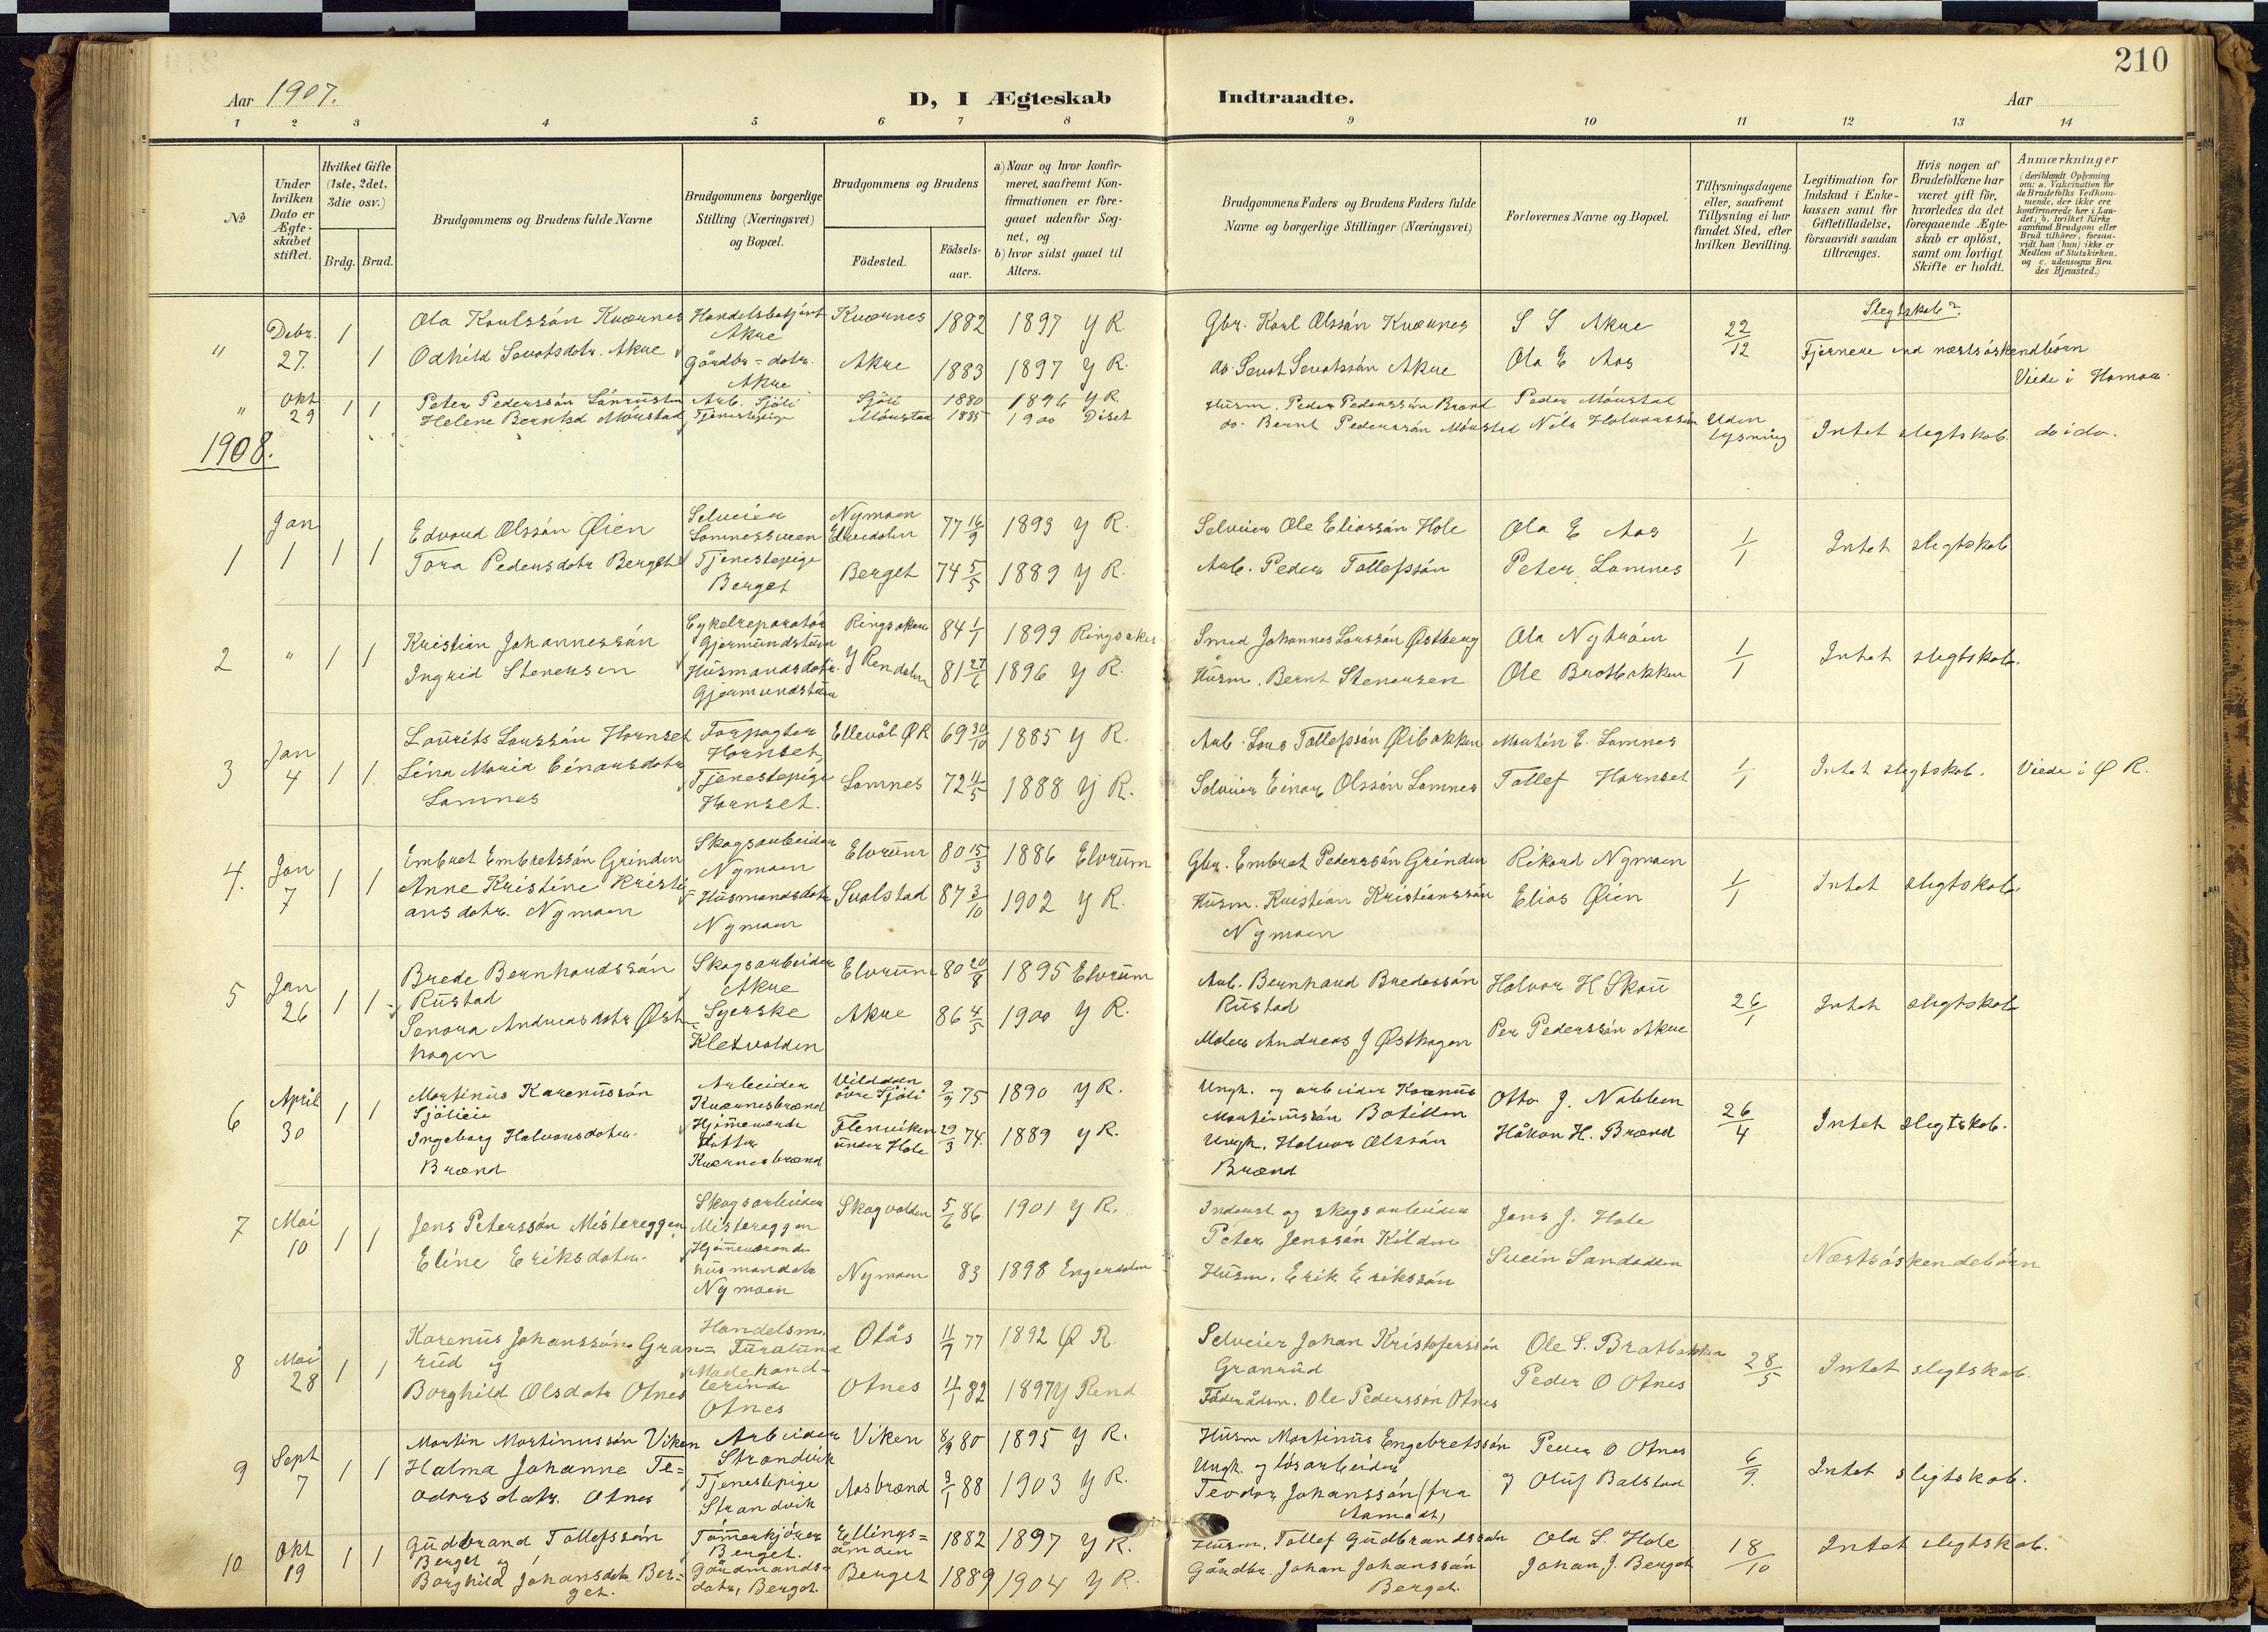 210
Aar 1907.
D, I Ægteskab Indtraadte.
Aar
1 2 3 4 5 6 7 8 9 10 11 12 13 14
№
Under hvilken Dato er Ægteskabet stiftet.
Hvilket Gifte (1ste, 2det, 3die osv.)
Brdg. Brud.
Brudgommens og Brudens fulde Navne
Brudgommens borgerlige Stilling (Næringsvei) og Bopæl.
Brudgommens og Brudens
Fødested.
Fødsels-aar.
a) Naar og hvor konfirmeret, saafremt Konfirmationen er foregaaet udenfor Sognet, og
b) hvor sidst gaaet til Alters.
Brudgommens Faders og Brudens Faders fulde Navne og borgerlige Stillinger (Næringsvei)
Forlovernes Navne og Bopæl.
Tillysningsdagene eller, saafremt Tillysning ei har fundet Sted, efter hvilken Bevilling.
Legitimation for Indskud i Enkekassen samt for Giftetilladelse, forsaavidt saadan tiltrænges.
Hvis nogen af Brudefolkene har været gift før, hvorledes da det foregaaende Ægteskab er opløst, samt om lovligt Skifte er holdt.
Anmærkninger (deriblandt Oplysning om: a. Vakcination for de Brudefolks Vedkommende, der ikke ere konfirmerede her i Landet; b. hvilket Kirkesamfund Brudgom eller Brud tilhører, forsaavidt han (hun) ikke er Medlem af Statskirken, og c. udensogns Brudes Hjemsted.)
" Debr. 27. 1 1 Ola Karlssøn Kværnes Handelsbetjent Akre Kværnes 1882 1897 Y R. Gbr. Karl Olssøn Kværnes S S Akre 22/12 Slegtskab?
Odhild Sevatsdotr. Akre Gårdbr=dotr. Akre Akre 1883 1897 Y R. do. Sevat Sevatssøn Akre Ola E Aas Fjernere end næstsøskendbørn Viede i Hamar.
" Okt 29 1 1 Peter Pederssøn Arb. Sjöli Sjöli 1880 1896 Y R Husm. Peder Pederssøn Brænd Peder Mōrstad
Helene Berntsd Mōrstad Tjenestepige Mōrstad 1885 1900 Diset do. Bernt Pederssøn Mōrstad Nils Halvorssøn Uden lysning Intet slegtskab. do i do.
1908.
1 Jan 1 1 1 Edvard Olssøn Øien Selveier Nymoen 77 16/9 1893 Y R. Selveier Ole Eliassøn Hole Ola E Aas 1/1 Intet slegtskab
Tora Pedersdotr Berget Tjenestepige Berget Berget 74 5/5 1889 Y R. Arb. Peder Tollefssøn Peter Lomnes
2 " 1 1 Kristian Johannessøn Cykelreparatør Ringsaker 84 1/1 1899 Ringsaker Smed Johannes Larssøn Østberg Ola Nytrøen 1/1 Intet slegtskab.
Ingrid Stenersen Husmandsdotr. Y Rendalen 81 27/6 1896 Y R. Husm. Bernt Stenersen Ole Brotbakken
3 Jan 4 1 1 Laurits Larssøn Hornset Forpagter Hornset, Ellevål Ø R 69 30/10 1885 Y R. Arb. Lars Tollefssøn Øibakken Martin E. Lomnes
Lina Maria Einarsdotr Lomnes Tjenestepige Hornset. Lomnes 72 11/5 1888 Y R. Selveier Einar Olssøn Lomnes Tollef Hornset 1/1 Intet slegtskab. Viede i Ø R.
4. Jan 7 1 1 Embret Embretssøn Grinden Skogsarbeider Nymoen Elvrum 80 15/3 1886 Elvrum Gbr. Embret Pederssøn Grinden Rikard Nymoen
Anne Kristine Kristiansdotr. Nymoen Husmandsdotr Nymoen Svalstad 87 3/10 1902 Y R. Husm. Kristian Kristianssøn Nymoen Elias Øien 1/1 Intet slegtskab.
5 Jan 26 1 1 Brede Bernhardssøn Rustad Skogsarbeider Akre Elvrum 80 20/8 1895 Elvrum Arb. Bernhard Bredessøn Rustad Halvor H Skou 26/1 Intet slegtskab
Senora Andreasdotr Østhagen Syerske Kletvolden Akre 86 4/5 1900 Y R. Maler Andreas J Østhagen Per Pederssøn Akre
6 April 30 1 1 Martinus Karenussøn Sjöliein Arbeider Kværnesbrænd øvre Sjöli 2/9 75 1890 Y R. Ungk. og arbeider Karenus Martinussøn Otto J. Nabben 26/4 Intet slegtskab.
Ingeborg Halvorsdotr. Brænd Hjemmeværende datter Kværnesbrænd under Hole 29/3 74. 1889 Y R. Ungk. Halvor Olssøn Brænd Håkon H. Brænd
7 Mai 10 1 1 Jens Peterssøn Mistereggen Skogsarbeider Mistereggen Skogvolden 5/6 86 1901 Y R. Inderst og skogsarbeider Peter Jenssøn Kilden Jens J. Hole
Eline Eriksdotr. Hjemmeværende husmandsdtr Nymoen Nymoen 83 1898 Engerdalen Husm. Erik Erikssøn Svein Sandodden Næstsøskendebørn
8 Mai 28 1 1 Karenus Johanssøn Granrud og Handelsm. Furulund Otås 11/7 77 1892 Ø R. Selveier Johan Kristoferssøn Granrud Ole S. Bratbakken 28/5 Intet slegtskab.
Borghild Olsdotr Otnes Modehandlerinde Otnes Otnes 11/1 82 1897 Y Rend Føderådsm. Ole Pederssøn Otnes Peder O Otnes
9 Sept 7 1 1 Martin Martinussøn Viken Arbeider Strandvik Viken 8/9 80 1895 Y R. Husm Martinus Engebretssøn Peder O Otnes 6/9. Intet slegtskab.
Halma Johanne Teodorsdotr. Otnes Tjenestepige Strandvik Aasbrænd 3/1 88 1903 Y R. Ungk. og løsarbeider Teodor Johanssøn (fra Aamodt) og Oluf Balstad
10 Okt 19 1 1 Gudbrand Tollefssøn Berget og Tømmerkjører Berget. Ellingsåmoen 1882 1897 Y R. Husm. Tollef Gudbrandssøn Ola S. Hole 18/10 Intet slegtskab.
Borghild Johansdotr Berget. Gårdmandsdotr, Berget Berget 1889 1904 Y R. Gårdbr. Johan Johanssøn Berget. Johan J. Berget